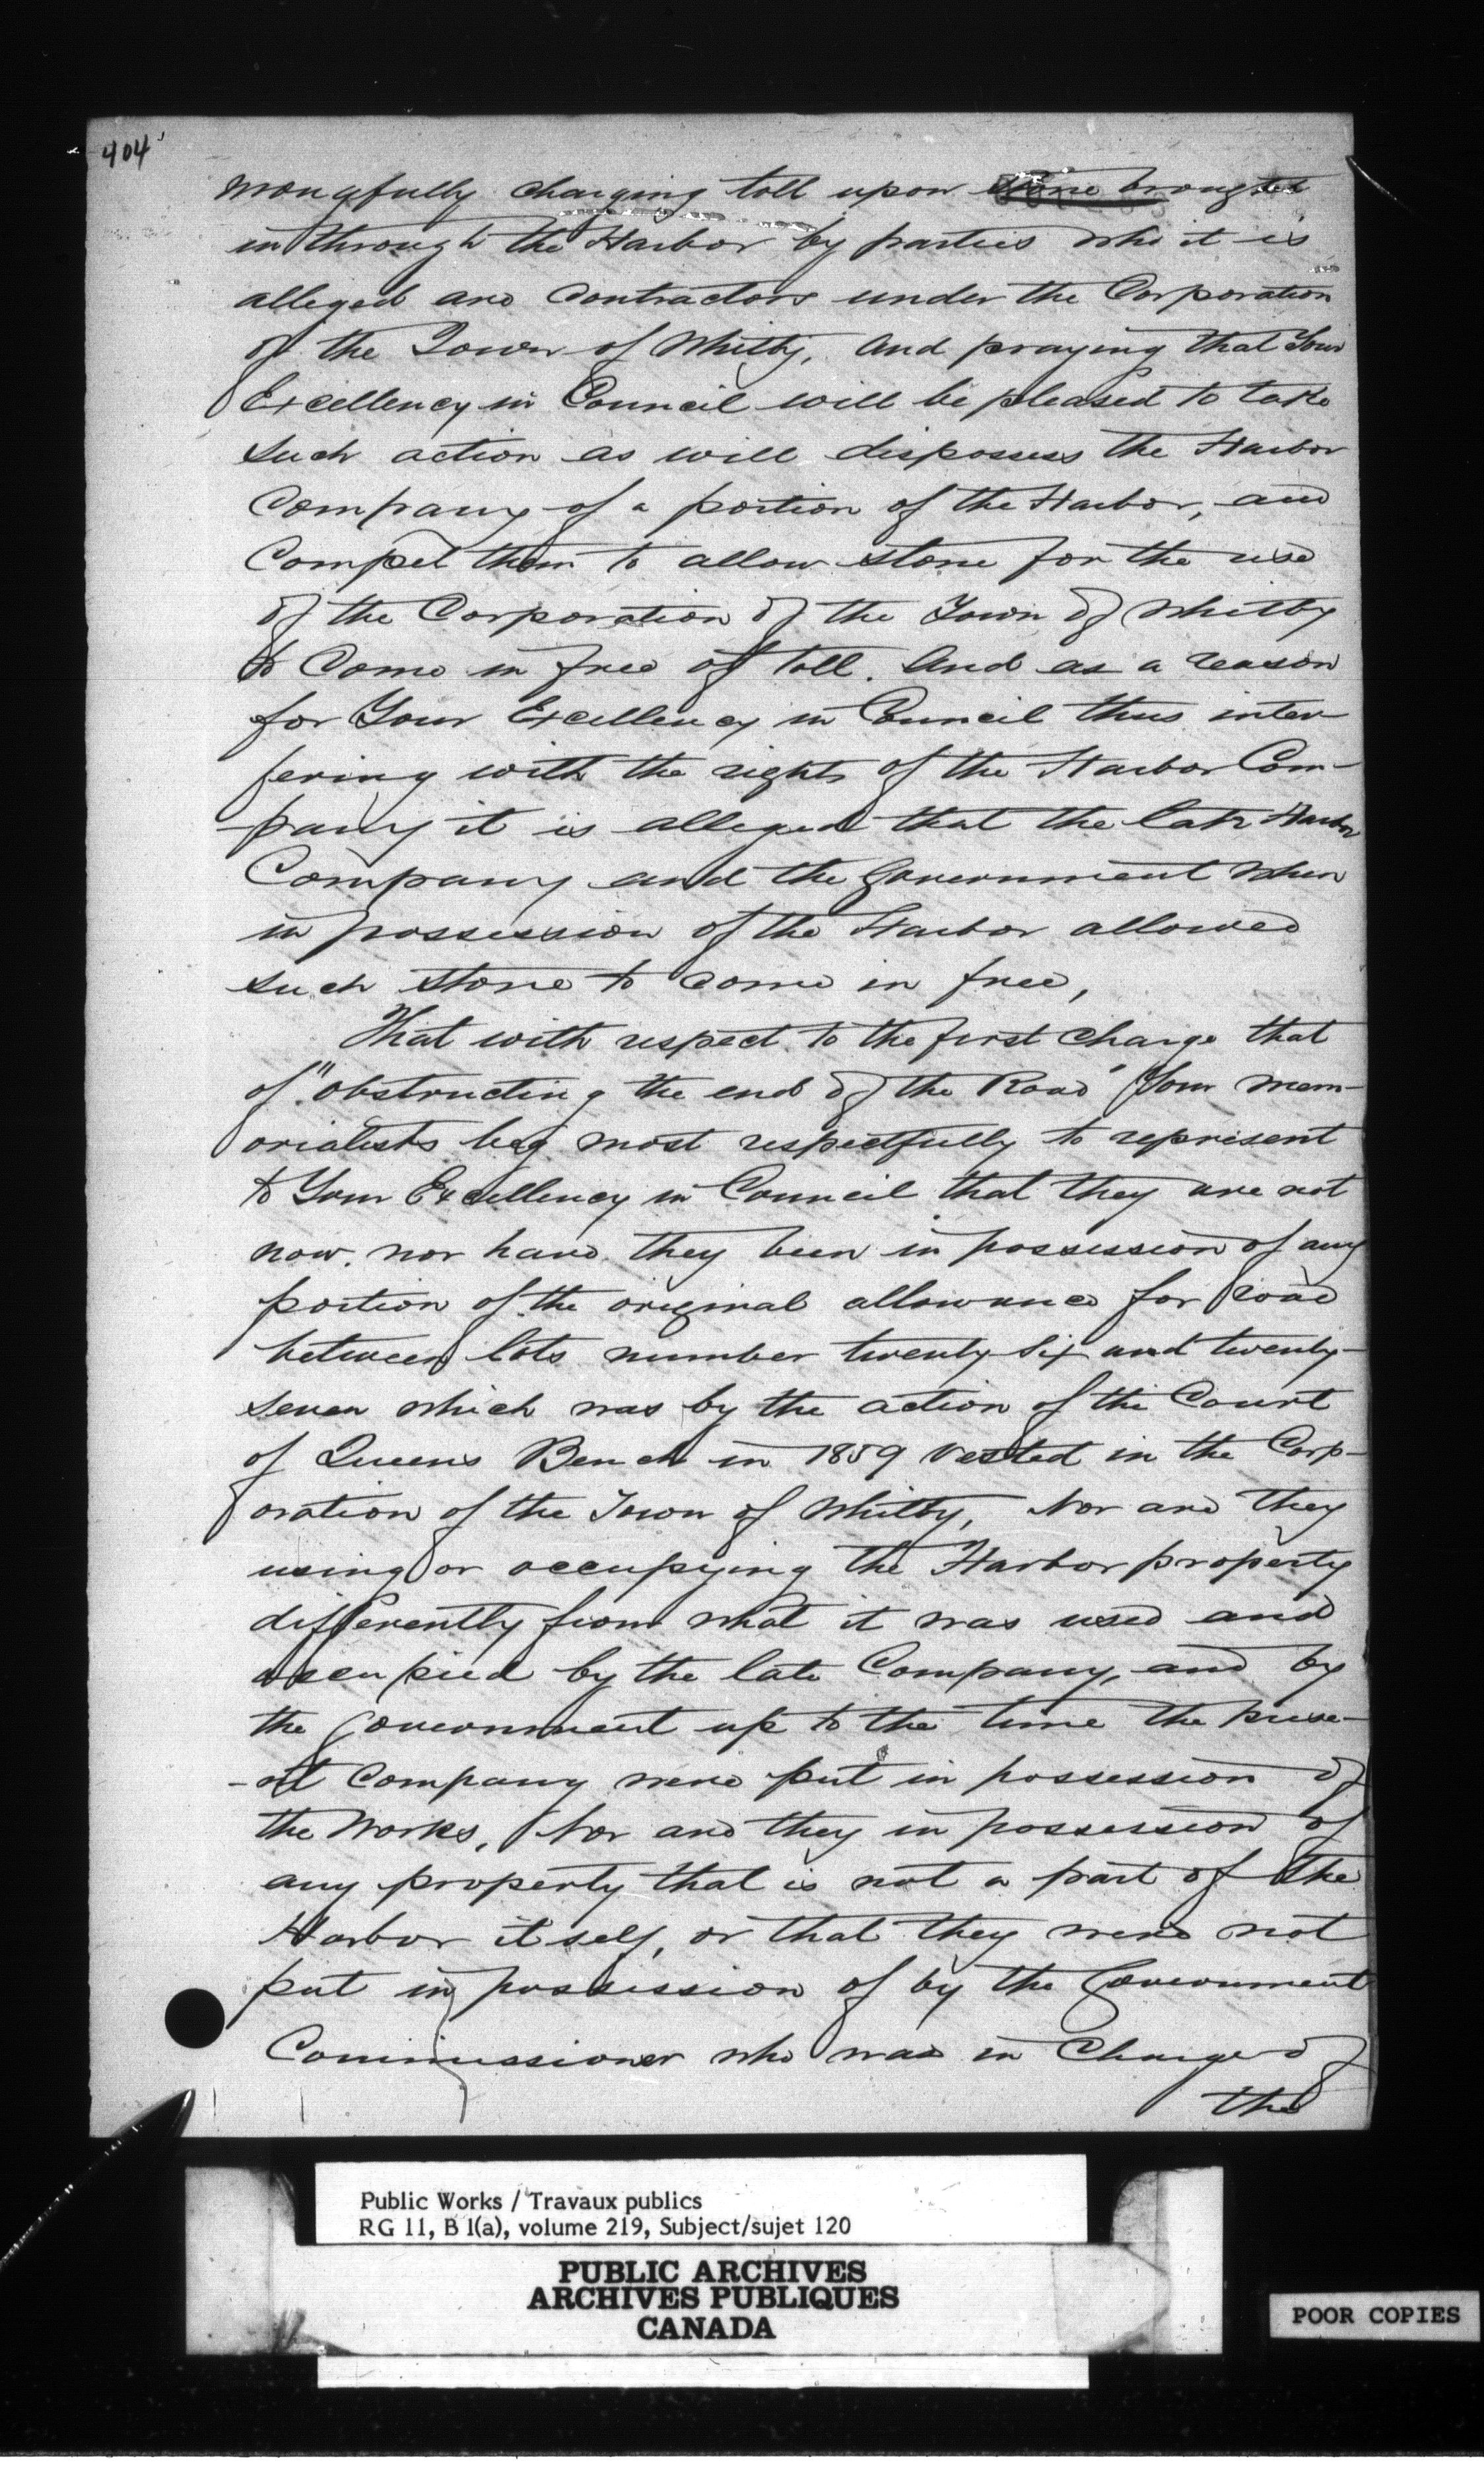 404
wrongfully charging toll upon Stone brought
in through the Harbor by parties who it is
alleged are Contractors under the Corporation
of the Town of Whitby, And praying that Your
Excellency in Council will be pleased to take
such action as will dispossess the Harbor
Company of a portion of the Harbor, and
Compel them to allow stone for the use
of the Corporation of the Town of Whitby
to Come in free of toll. And as a reason
for Your Excellency in Council thus inter-
fering with the rights of the Harbor Com-
-pany it is alleged that the late Harbor
Company and the Government when
in possession of the Harbor allowed
such stone to come in free,
That with respect to the first charge that
of "obstructing the end of the Road" Your Mem-
orialists beg most respectfully to represent
to Your Excellency in Council that they are not
now, nor have they been in possession of any
portion of the original allowance for Road
between lots number twenty six and twenty-
seven which was by the action of the Court
of Queens Bench in 1859 vested in the Corp-
oration of the Town of Whitby, Nor are they
using or occupying the Harbor property
differently from what it was used and
occupied by the late Company, and by
the Government up to the time the prese-
-nt Company were put in possession of
the Works, Nor are they in possession of
any property that is not a part of the
Harbor itself, or that they were not
put in possession of by the Government
Commissioner who was in Charge of
the
Public Works / Travaux publics
RG 11, B 1(a), volume 219, Subject/sujet 120
PUBLIC ARCHIVES
ARCHIVES PUBLIQUES
CANADA
POOR COPIES